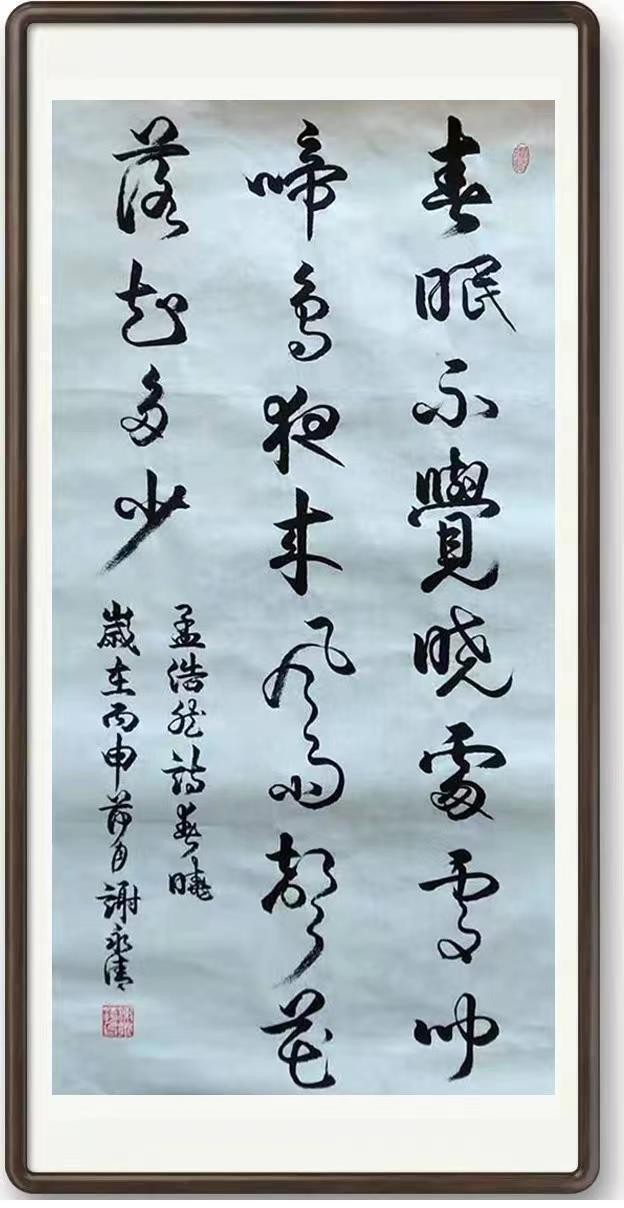 春眠不覺晓處處聞
啼鳥夜来風雨聲花
落知多少
孟浩然詩春曉
歲在丙申月謝永清